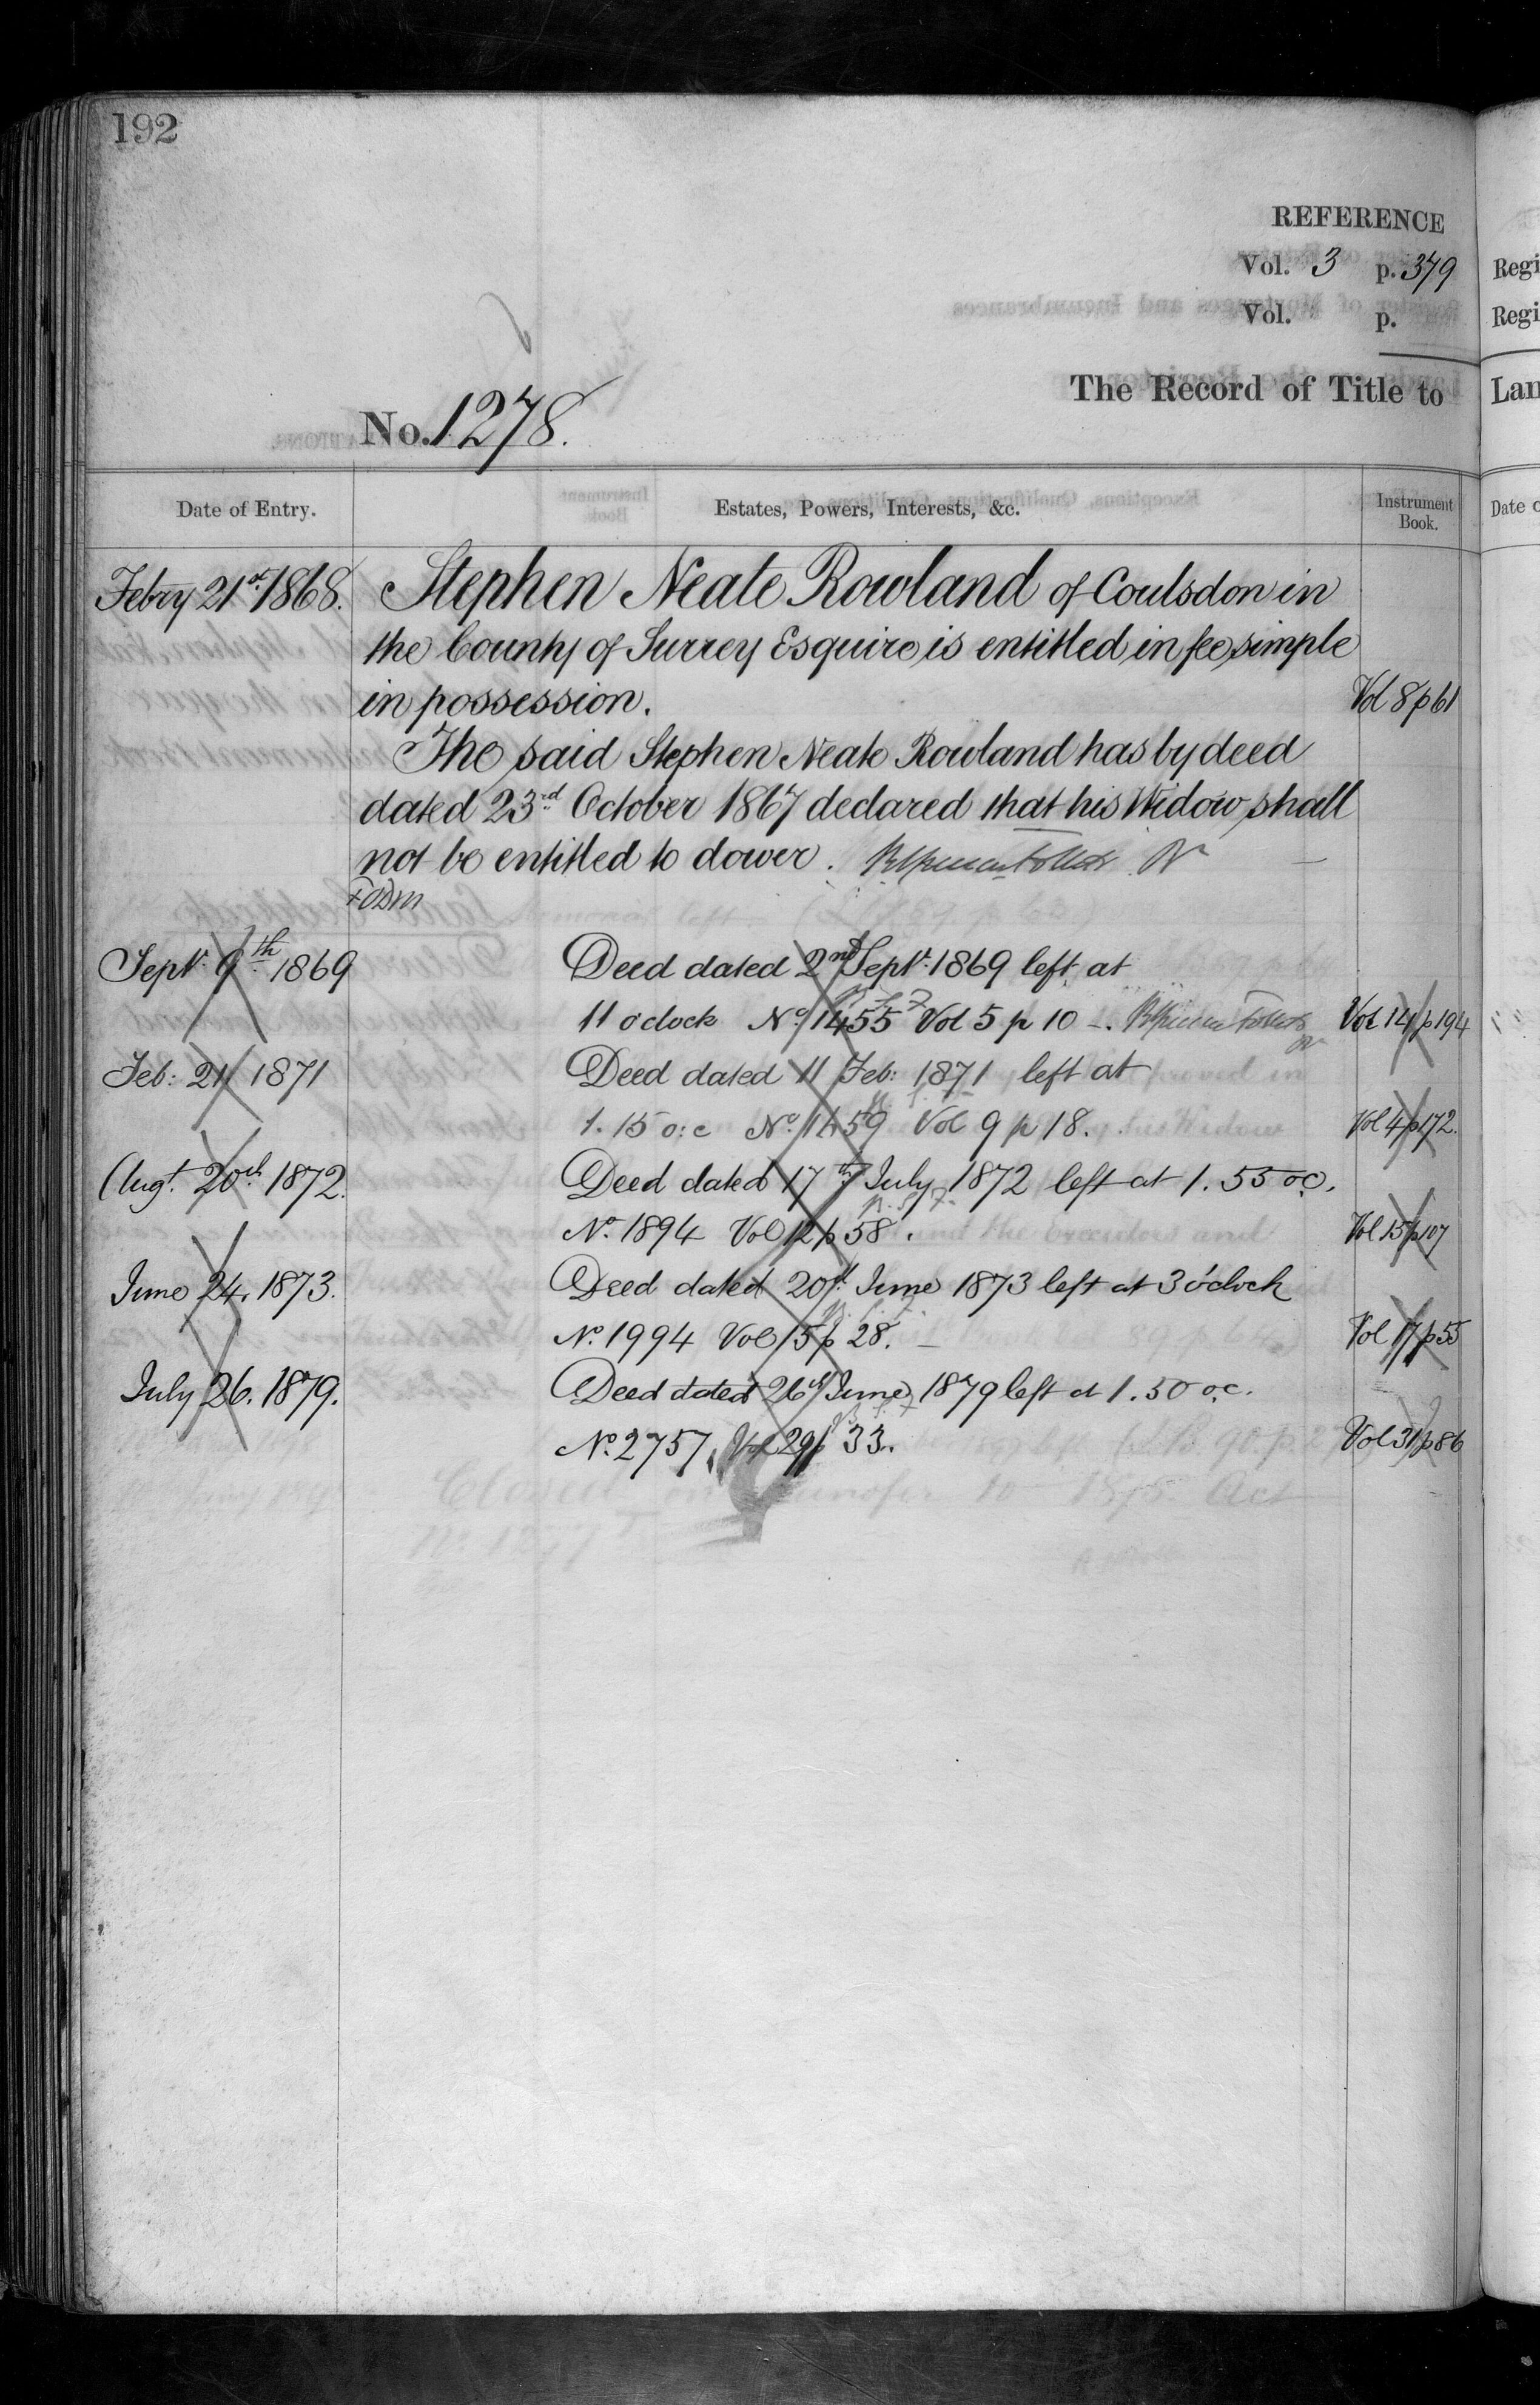 192
REFERENCE
Vol. 3 p. 379
Vol. p.
The Record of Title to
No. 1278.
Date of Entry. Estates, Powers, Interests, &c. Instrument Book.
Febry 21st 1868. Stephen Neate Rowland of Coulsdon in
the County of Surrey Esquire is entitled in fee simple
in possession. Vol 8 p 61
The said Stephen Neate Rowland has by deed
dated 23rd October 1867 declared that his Widow shall
not be entitled to dower.
Sept. 9th 1869 Deed dated 2nd Sept. 1869 left at
11 o'clock No. 1455 Vol 5 p 10 -. Vol 14 p 194
Feb: 21 1871 Deed dated 11 Feb: 1871 left at
1.15 o:c No. 1659 Vol 9 p 18. Vol 4 p 172.
Augt. 20th 1872. Deed dated 17th July 1872 left at 1.55 o.c.
No. 1894 Vol 12 p 58. Vol 15 p 107
June 24. 1873. Deed dated 20th June 1873 left at 3 o'clock
No. 1994 Vol 15 p 28. Vol 17 p 55
July 26. 1879. Deed dated 26th June 1879 left at 1.50 o.c.
No. 2757, Vol 29 p 33. Vol 31 p 86
Closed on transfer to 1875 Act
Regi
Regi
Lan
Date o